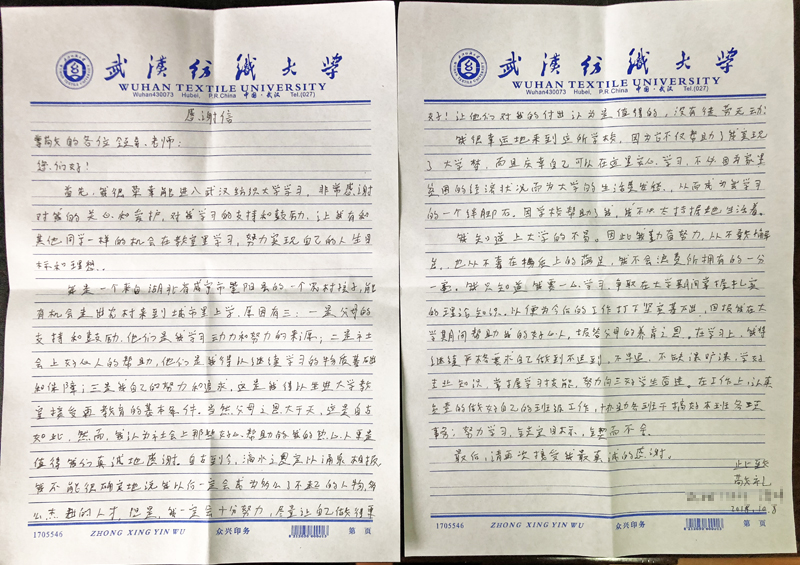 武汉纺织大学
WUHAN TEXTILE UNIVERSITY
Wuhan430073 Hubei, P.R.China 中国·武汉 Tel.(027)
感谢信
尊敬的各位领导、老师:
您们好!
首先,我很荣幸能进入武汉纺织大学学习,非常感谢
对我的关心和爱护,对我学习的支持和鼓励,让我有和
其他同学一样的机会在教室里学习,努力实现自己的人生目
标和理想。
我是一个来自湖北省咸宁市崇阳县的一个农村孩子,能
有机会走出农村来到城市里上学,原因有三:一是父母的
支持和鼓励,他们是我学习动力和努力的来源;二是社
会上好心人的帮助,他们是我得以继续学习的物质基础
和保障;三是我自己的努力和追求,这是我得以坐进大学教
室接受再教育的基本条件。当然父母之恩大于天,这是自古
如此,然而,我认为社会上那些好心帮助的我的热心人更是
值得我们真诚地感谢。自古到今,滴水之恩定以涌泉相报,
我不能很确实地说我以后一定会成为多么了不起的人物,多
么杰出的人才,但是,我一定会十分努力,尽量让自己做得更
1705546 ZHONG XING YIN WU 众兴印务 第 页
武汉纺织大学
WUHAN TEXTILE UNIVERSITY
Wuhan430073 Hubei, P.R.China 中国·武汉 Tel.(027)
好!让他们对我的付出认为是值得的,没有徒劳无功!
我很幸运地来到这所学校,因为它不仅帮助了我实现
了大学梦,而且庆幸自己可以在这里安心学习,不必因为家里
贫困的经济状况而为大学的生活费发愁,从而成为我学习
的一个绊脚石。因学校帮助了我,我不必太拮据地生活着。
我知道上大学的不易。因此我勤奋努力,从不敢懈
怠,也从不喜在攀比上的满足,我不会浪费所拥有的一分
一毫。我只知道我要一心学习,争取在大学期间掌握扎实
的理论知识,以便为今后的工作打下坚实基础,回报我在大
学期间帮助我的好心人,报答父母的养育之恩。在学习上,我将
继续严格要求自己做到不迟到、不早退、不缺课旷课,学好
专业知识,掌握学习技能,努力向三好学生奋进。在工作上,认真
负责的做好自己的班级工作,协助各班干搞好本班各项
事务;努力学习,锚定目标,
最后,请再次接受我最真诚的感谢。
此致
2018.10.8
1705546 ZHONG XING YIN WU 众兴印务 第 页